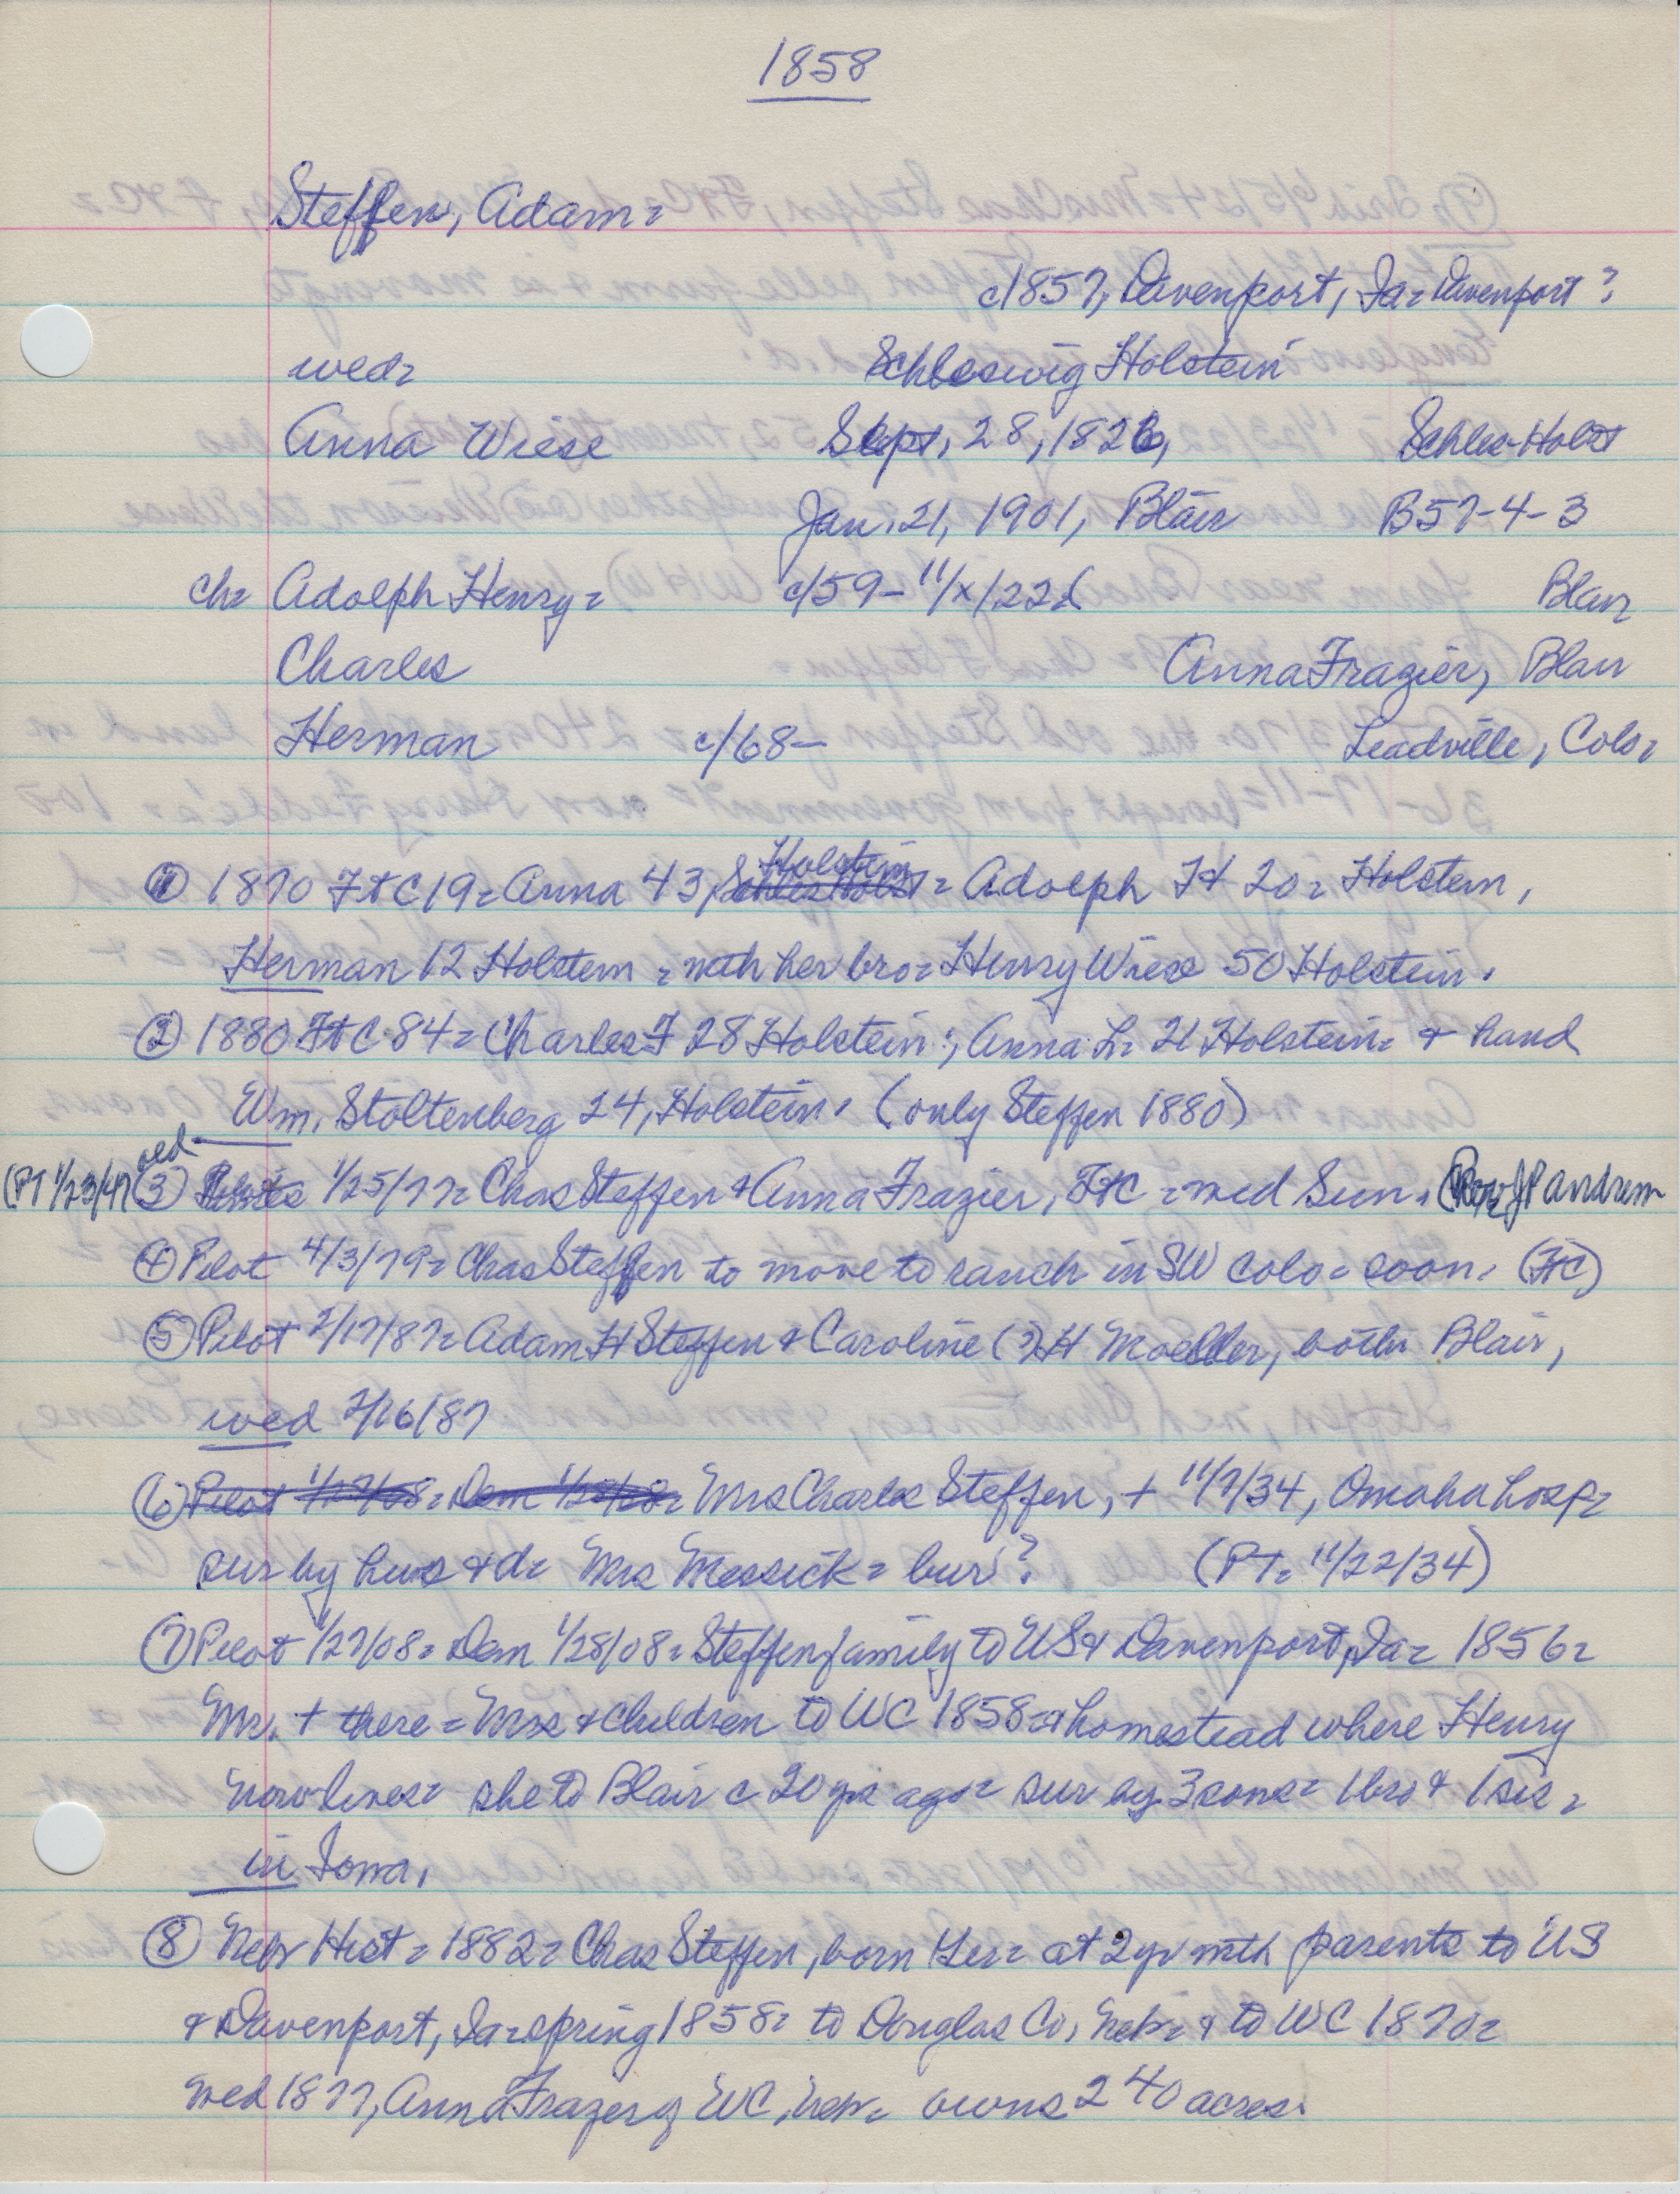 1858
Steffen, Adam=
c/1857, Davenport, Ia= Davenport?
wed= Schleswig Holstein
Anna Wiese Sept. 28, 1826, Schles-Holst
Jan. 21, 1901, Blair B57-4-3
ch= Adolph Henry= c/59- 11/x/22 Blair
Charles Anna Frazier, Blair
Herman c/68- Leadville, Colo=
Holstein
① 1870 Ft C 19= Anna 43, Schles Holst= Adolph H 20= Holstein,
Herman 12 Holstein = with her bro= Henry Wiese 50 Holstein.
② 1880 Ft C 84= Charles F 28 Holstein; Anna L= 21 Holstein= & hand
Wm. Stoltenberg 24, Holstein. (only Steffen 1880)
wed
(PT 1/23/47) ③ 1/25/77= Chas Steffen & Anna Frazier, FtC = wed Sun. (Rev JP Andrew
④ Pilot 4/3/79= Chas Steffen to move to ranch in SW Colo= soon. (FtC)
⑤ Pilot 2/17/87= Adam H Steffen & Caroline (?) H Moeller, both Blair,
wed 2/16/87
⑥ Pilot 1/27/08= Dem 1/28/08= Mrs Charles Steffen, + 11/7/34, Omaha hosp=
sur by hus & d= Mrs Messick= bur? (PT= 11/22/34)
⑦ Pilot 1/27/08= Dem 1/28/08= Steffen family to US & Davenport, Ia= 1856=
Mr. + there = Mrs & children to WC 1858= homestead where Henry
now lives= she to Blair c 20 yrs ago= sur by 3 sons= 1 bro & 1 sis=
in Iowa.
⑧ Nebr Hist= 1882= Chas Steffen, born Ger= at 2 yr with parents to US
& Davenport, Ia= spring 1858= to Douglas Co, Nebr= & to WC 1870=
wed 1877, Anna Frazer of WC, Nebr= owns 240 acres.